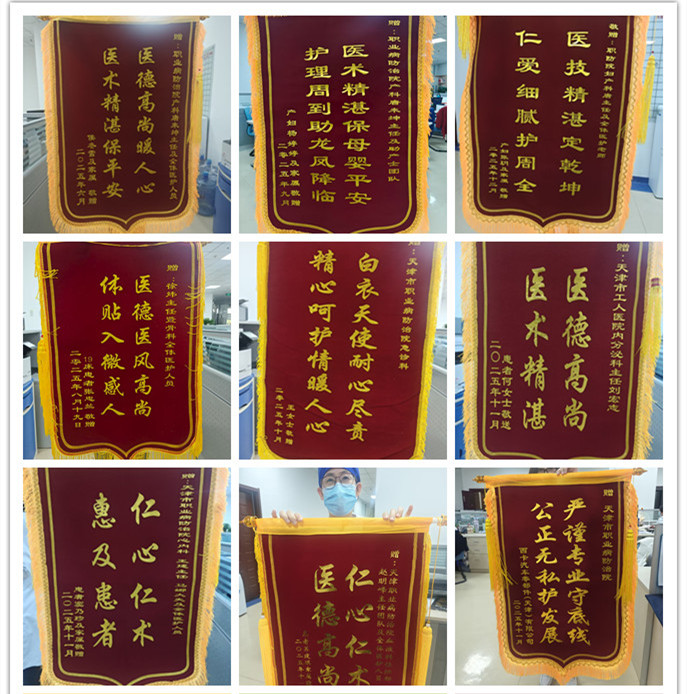 赠：职业病防治院产科唐永坤主任及全体医护人员
医德高尚暖人心
医术精湛保平安
及家属 敬赠
二〇二五年六月
赠：职业病防治院产科唐永坤主任及助产士团队
医术精湛保母婴平安
护理周到助龙凤降临
产妇杨婷婷及家属敬赠
二零二五年九月
敬赠：职防院妇产科唐主任及全体医护
医技精湛定乾坤
仁爱细腻护周全
敬赠
二零二五年十二月
赠：徐炜主任暨骨科全体医护人员
医德医风高尚
体贴入微感人
19床患者张志兰敬赠
二零二五年八月十九日
赠：天津市职业病防治院急诊科
白衣天使耐心尽责
精心呵护情暖人心
王女士敬赠
二零二五年十月
赠：天津市工人医院内分泌科主任刘宏志
医德高尚
医术精湛
患者何女士敬送
二〇二五年十一月
赠：天津市职业病防治院心内科
仁心仁术
惠及患者
患者及家属敬赠
二〇二五年十一月
赠：天津职业病防治院
赵明峰主任团队及全体医护人员
仁心仁术
医德高尚
二〇二五年十
赠 天津市职业病防治院
严谨专业守底线
公正无私护发展
西卡汽车零部件（天津）有限公司
二〇二五年十一月